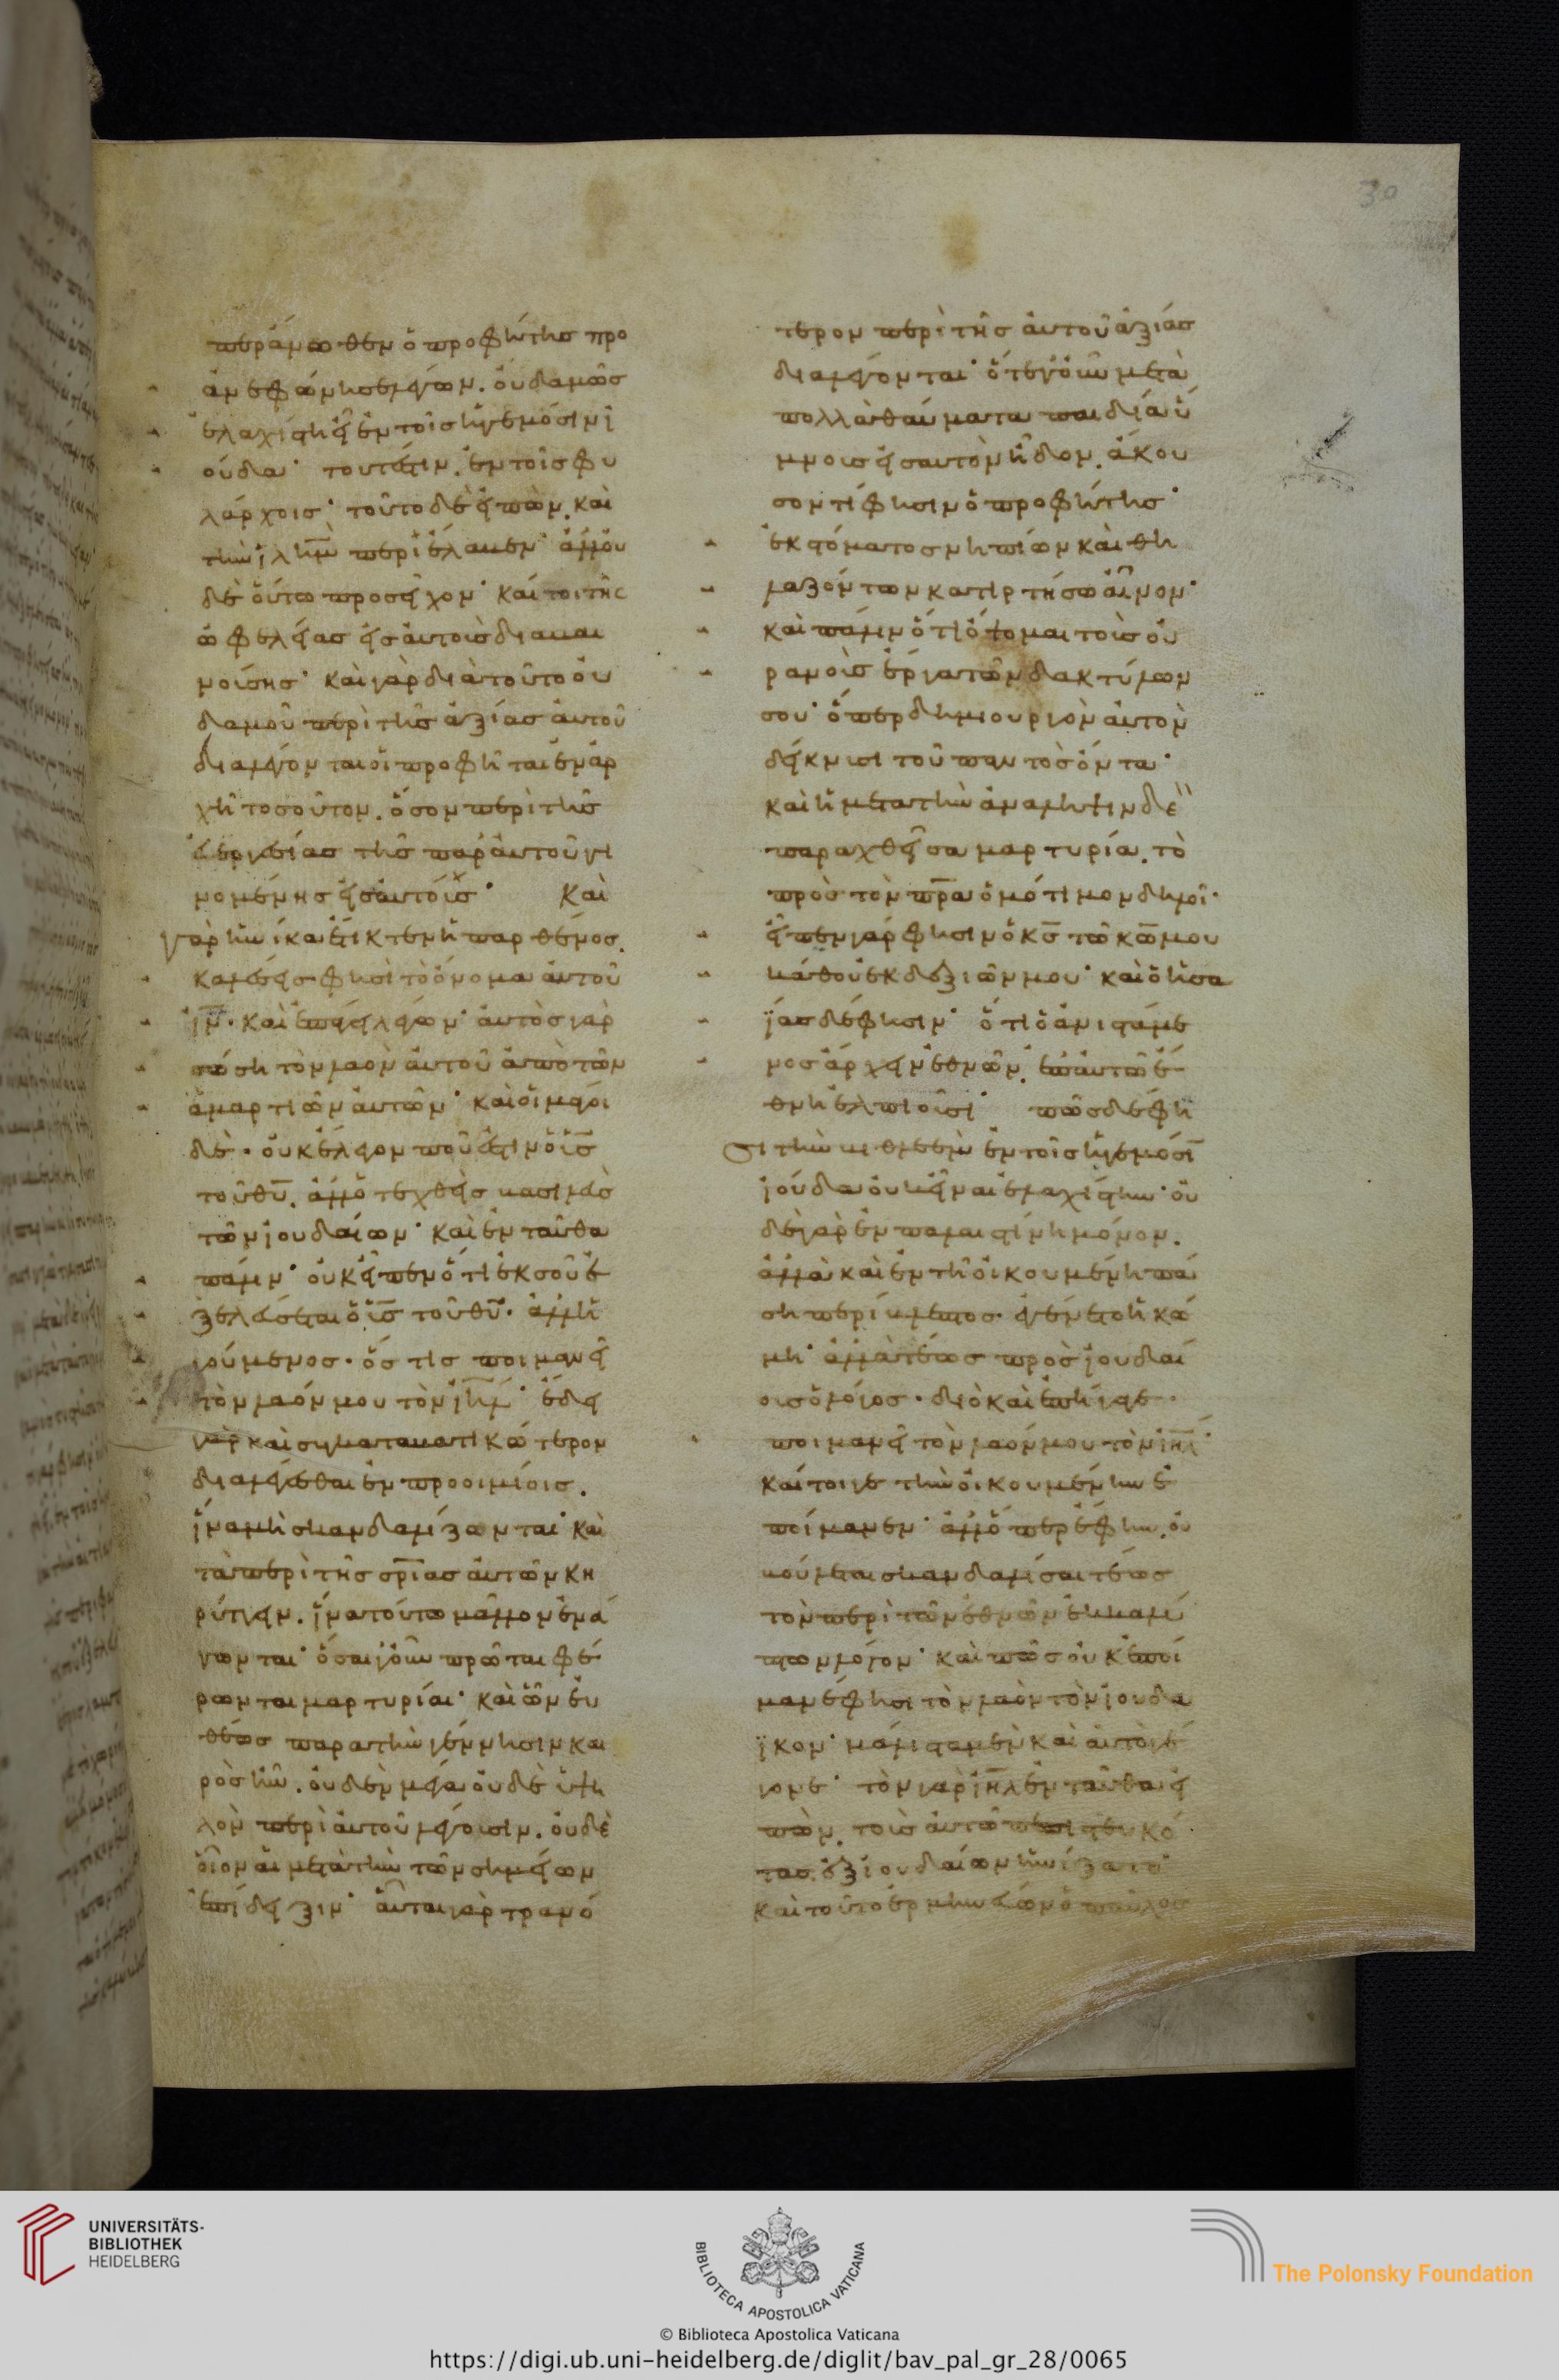 30
περ ἄνωθεν ὁ προφήτης προ
ἀνεφώνησε λέγων. οὐδαμῶς
ἐλαχίστη εἶ ἐν τοῖς ἡγεμόσιν ἰ
ούδα· τουτέστιν. ἐν τοῖς φυ
λάρχοις· τοῦτο δὲ εἰπὼν. καὶ
τὴν ἰλημ̅ περιέλαβεν· ἀλλ' οὐ
δὲ οὕτω προσεῖχον· καίτοι τῆς
ὠφελείας εἰς αὐτοὺς διαβαι
νούσης· καὶ γὰρ διὰ τοῦτο οὐ
δαμοῦ περὶ τῆς ἀξίας αὐτοῦ
διαλέγονται οἱ προφῆται ἐν ἀρ
χῆ τοσοῦτον. ὅσον περὶ τῆς
εὐεργεσίας τῆς παρ' αὐτοῦ γι
νομένης εἰς αὐτούς· Καὶ
γὰρ ἡνίκα ἔτικτεν ἡ παρθένος.
καλέσεις φησὶ τὸ ὄνομα αὐτοῦ
ι̅ν̅· καὶ ἐπάγει λέγων· αὐτὸς γὰρ
σώσει τὸν λαὸν αὐτοῦ ἀπὸ τῶν
ἁμαρτιῶν αὐτῶν· καὶ οἱ μάγοι
δὲ· οὐκ ἔλεγον ποῦ ἐστιν ὁ υ̅ς̅
τοῦ θ̅υ̅. ἀλλ' ὁ τεχθεὶς βασιλεὺς
τῶν ἰουδαίων· καὶ ἐνταῦθα
πάλιν· οὐκ εἶπεν ὅτι ἐκ σοῦ ἐ
ξελεύσεται ὁ υ̅ς̅ τοῦ θ̅υ̅· ἀλλ' ἡ
γούμενος· ὅστις ποιμανεῖ
τὸν λαόν μου τὸν ι̅η̅λ̅· ἔδει
γὰρ καὶ συγκαταβατικώτερον
διαλέγεσθαι ἐν προοιμίοις.
ἵνα μὴ σκανδαλίζωνται· καὶ
τὰ περὶ τῆς σ̅ρ̅ίας αὐτῶν κη
ρύττειν. ἵνα τούτω μᾶλλον ἐνά
γωνται· ὅσαι γοῦν πρῶται φέ
ρωνται μαρτυρίαι· καὶ ὧν εὐ
θέως παρὰ τὴν γέννησιν και
ρὸς ἦν. οὐδὲν μέγα οὐδὲ ὑψη
λὸν περὶ αὐτοῦ λέγουσιν. οὐδὲ
οἷον αἱ μετὰ τὴν τῶν σημείων
ἐπίδειξιν· αὗται γὰρ τρανό
τερον περὶ τῆς αὐτοῦ ἀξίας
διαλέγονται· ὅτε γοῦν μετὰ
πολλὰ θαύματα παιδία ὕ
μνους εἰς αὐτὸν ἦδον. ἄκου
σον τί φησιν ὁ προφήτης·
ἐκ στόματος νηπίων καὶ θη
λαζόντων κατηρτήσω αἶνον·
καὶ πάλιν ὅτι ὄψομαι τοὺς οὐ
ρανοὺς ἔργα τῶν δακτύλων
σου· ὅπερ δημιουργὸν αὐτὸν
δείκνυσι τοῦ παντὸς ὄντα·
καὶ ἡ μετὰ τὴν ἀνάληψιν δὲ
παραχθεῖσα μαρτυρία. τὸ
πρὸς τὸν π̅ρ̅α ὁμότιμον δηλοῖ·
εἶπεν γάρ φησιν ὁ κ̅ς̅ τῶ κ̅ω̅ μου
κάθου ἐκ δεξιῶν μου· καὶ ὁ ἡσα
ΐας δέ φησιν· ὅτι ὁ ἀνιστάμε
νος ἄρχειν ἐθνῶν. ἐπ' αὐτῶ ἔ
θνη ἐλπιοῦσι· πῶς δέ φη
σι τὴν βηθλεὲμ ἐν τοῖς ἡγεμόσι
ἰούδα οὐκ εἶναι ἐλαχίστην· οὐ
δὲ γὰρ ἐν παλαιστίνη μόνον.
ἀλλὰ καὶ ἐν τῆ οἰκουμένη πά
ση περίβλεπτος· γέγονεν ἡ κώ
μη· ἀλλὰ τέως πρὸς ἰουδαί
ους ὁ λόγος· διὸ καὶ ἐπήγαγε·
ποιμανεῖ τὸν λαόν μου τὸν ι̅η̅λ̅·
καίτοιγε τὴν οἰκουμένην ἐ
ποίμανεν· ἀλλ' ὅπερ ἔφην. οὐ
βούλεται σκανδαλίσαι τέως
τὸν περὶ τῶν ἐθνῶν ἐκκαλύ
πτων λόγον· καὶ πῶς οὐκ ἐποί
μανέ φησι τὸν λαὸν τὸν ἰουδα
ϊκόν· μάλιστα μὲν καὶ αὐτὸ γέ
γονε· τὸν γὰρ ι̅η̅λ̅ ἐνταῦθα εἰ
πὼν. τοὺς αὐτῶ πεπιστευκό
τας ἐξ ἰουδαίων ἠνίξατο·
καὶ τοῦτο ἑρμηνεύων ὁ παῦλος
UNIVERSITÄTS-
BIBLIOTHEK
HEIDELBERG
BIBLIOTECA APOSTOLICA VATICANA
The Polonsky Foundation
© Biblioteca Apostolica Vaticana
https://digi.ub.uni-heidelberg.de/diglit/bav_pal_gr_28/0065